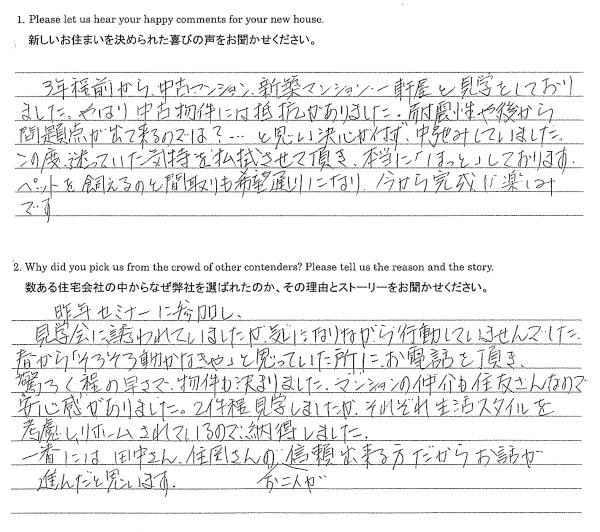 1. Please let us hear your happy comments for your new house.
新しいお住まいを決められた喜びの声をお聞かせください。
3年程前から、中古マンション、新築マンション、一軒屋と見学をしており
ました。やはり中古物件には抵抗がありました。耐震性や後から
問題点が出て来るのでは?…と思い決心が付ず、中弛みしていました。
この度、迷っていた気持を払拭させて頂き、本当に「ほっと」しております。
ペットを飼えるのと間取りも希望通りになり、今から完成が楽しみ
です
2. Why did you pick us from the crowd of other contenders? Please tell us the reason and the story.
数ある住宅会社の中からなぜ弊社を選ばれたのか、その理由とストーリーをお聞かせください。
昨年セミナーに参加し、
見学会に誘われていましたが、気になりながら行動していませんでした。
春から「そろそろ動かなきゃ」と思っていた所に、お電話を頂き、
驚ろく程の早さで、物件が決まりました。マンションの仲介も住友さんなので
安心感がありました。2件程見学しましたが、それぞれ生活スタイルを
考慮しリホームされているので、納得しました。
一番には田中さん、住岡さんの信頼出来る方だからお話が
進んだと思います。 お二人が